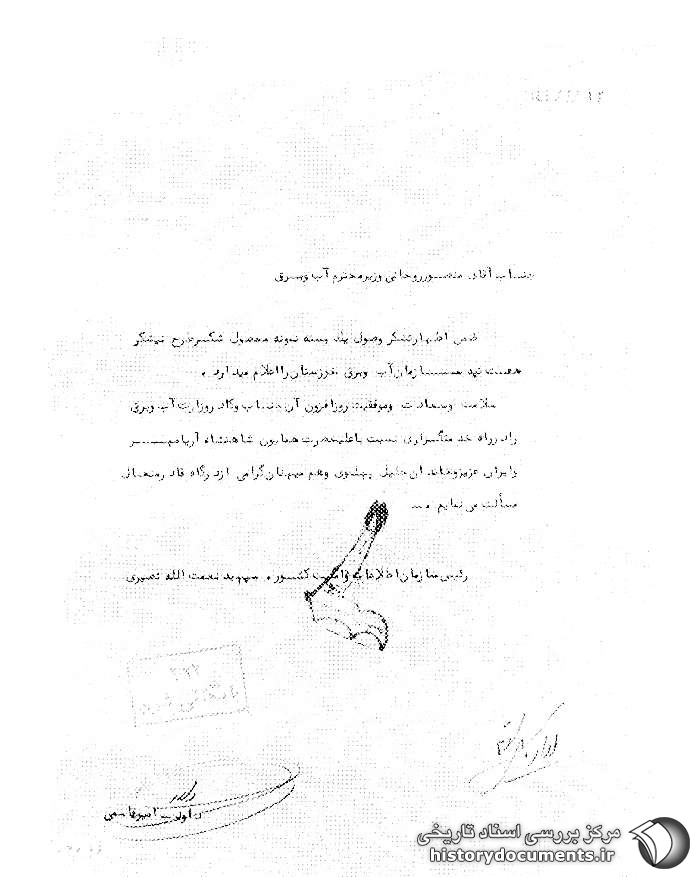 جناب آقای منصور روحانی وزیر محترم آب و برق
ضمن اظهار تشکر وصول یک بسته نمونه محصول شکر طرح نیشکر
هفت تپه سازمان آب و برق خوزستان را اعلام میدارد .
سلامت وسعادت وموفقیت روزافزون آن جناب وکادر وزارت آب وبرق
را در راه خدمتگزاری نسبت باعلیحضرت همایون شاهنشاه آریامهر
وایران عزیز وخاندان جلیل پهلوی وهم میهنان گرامی از درگاه قادر متعال
مسألت می نمایم .
رئیس سازمان اطلاعات وامنیت کشور . سپهبد نعمت الله نصیری
۲۷۲
مرکز بررسی اسناد تاریخی
historydocuments.ir